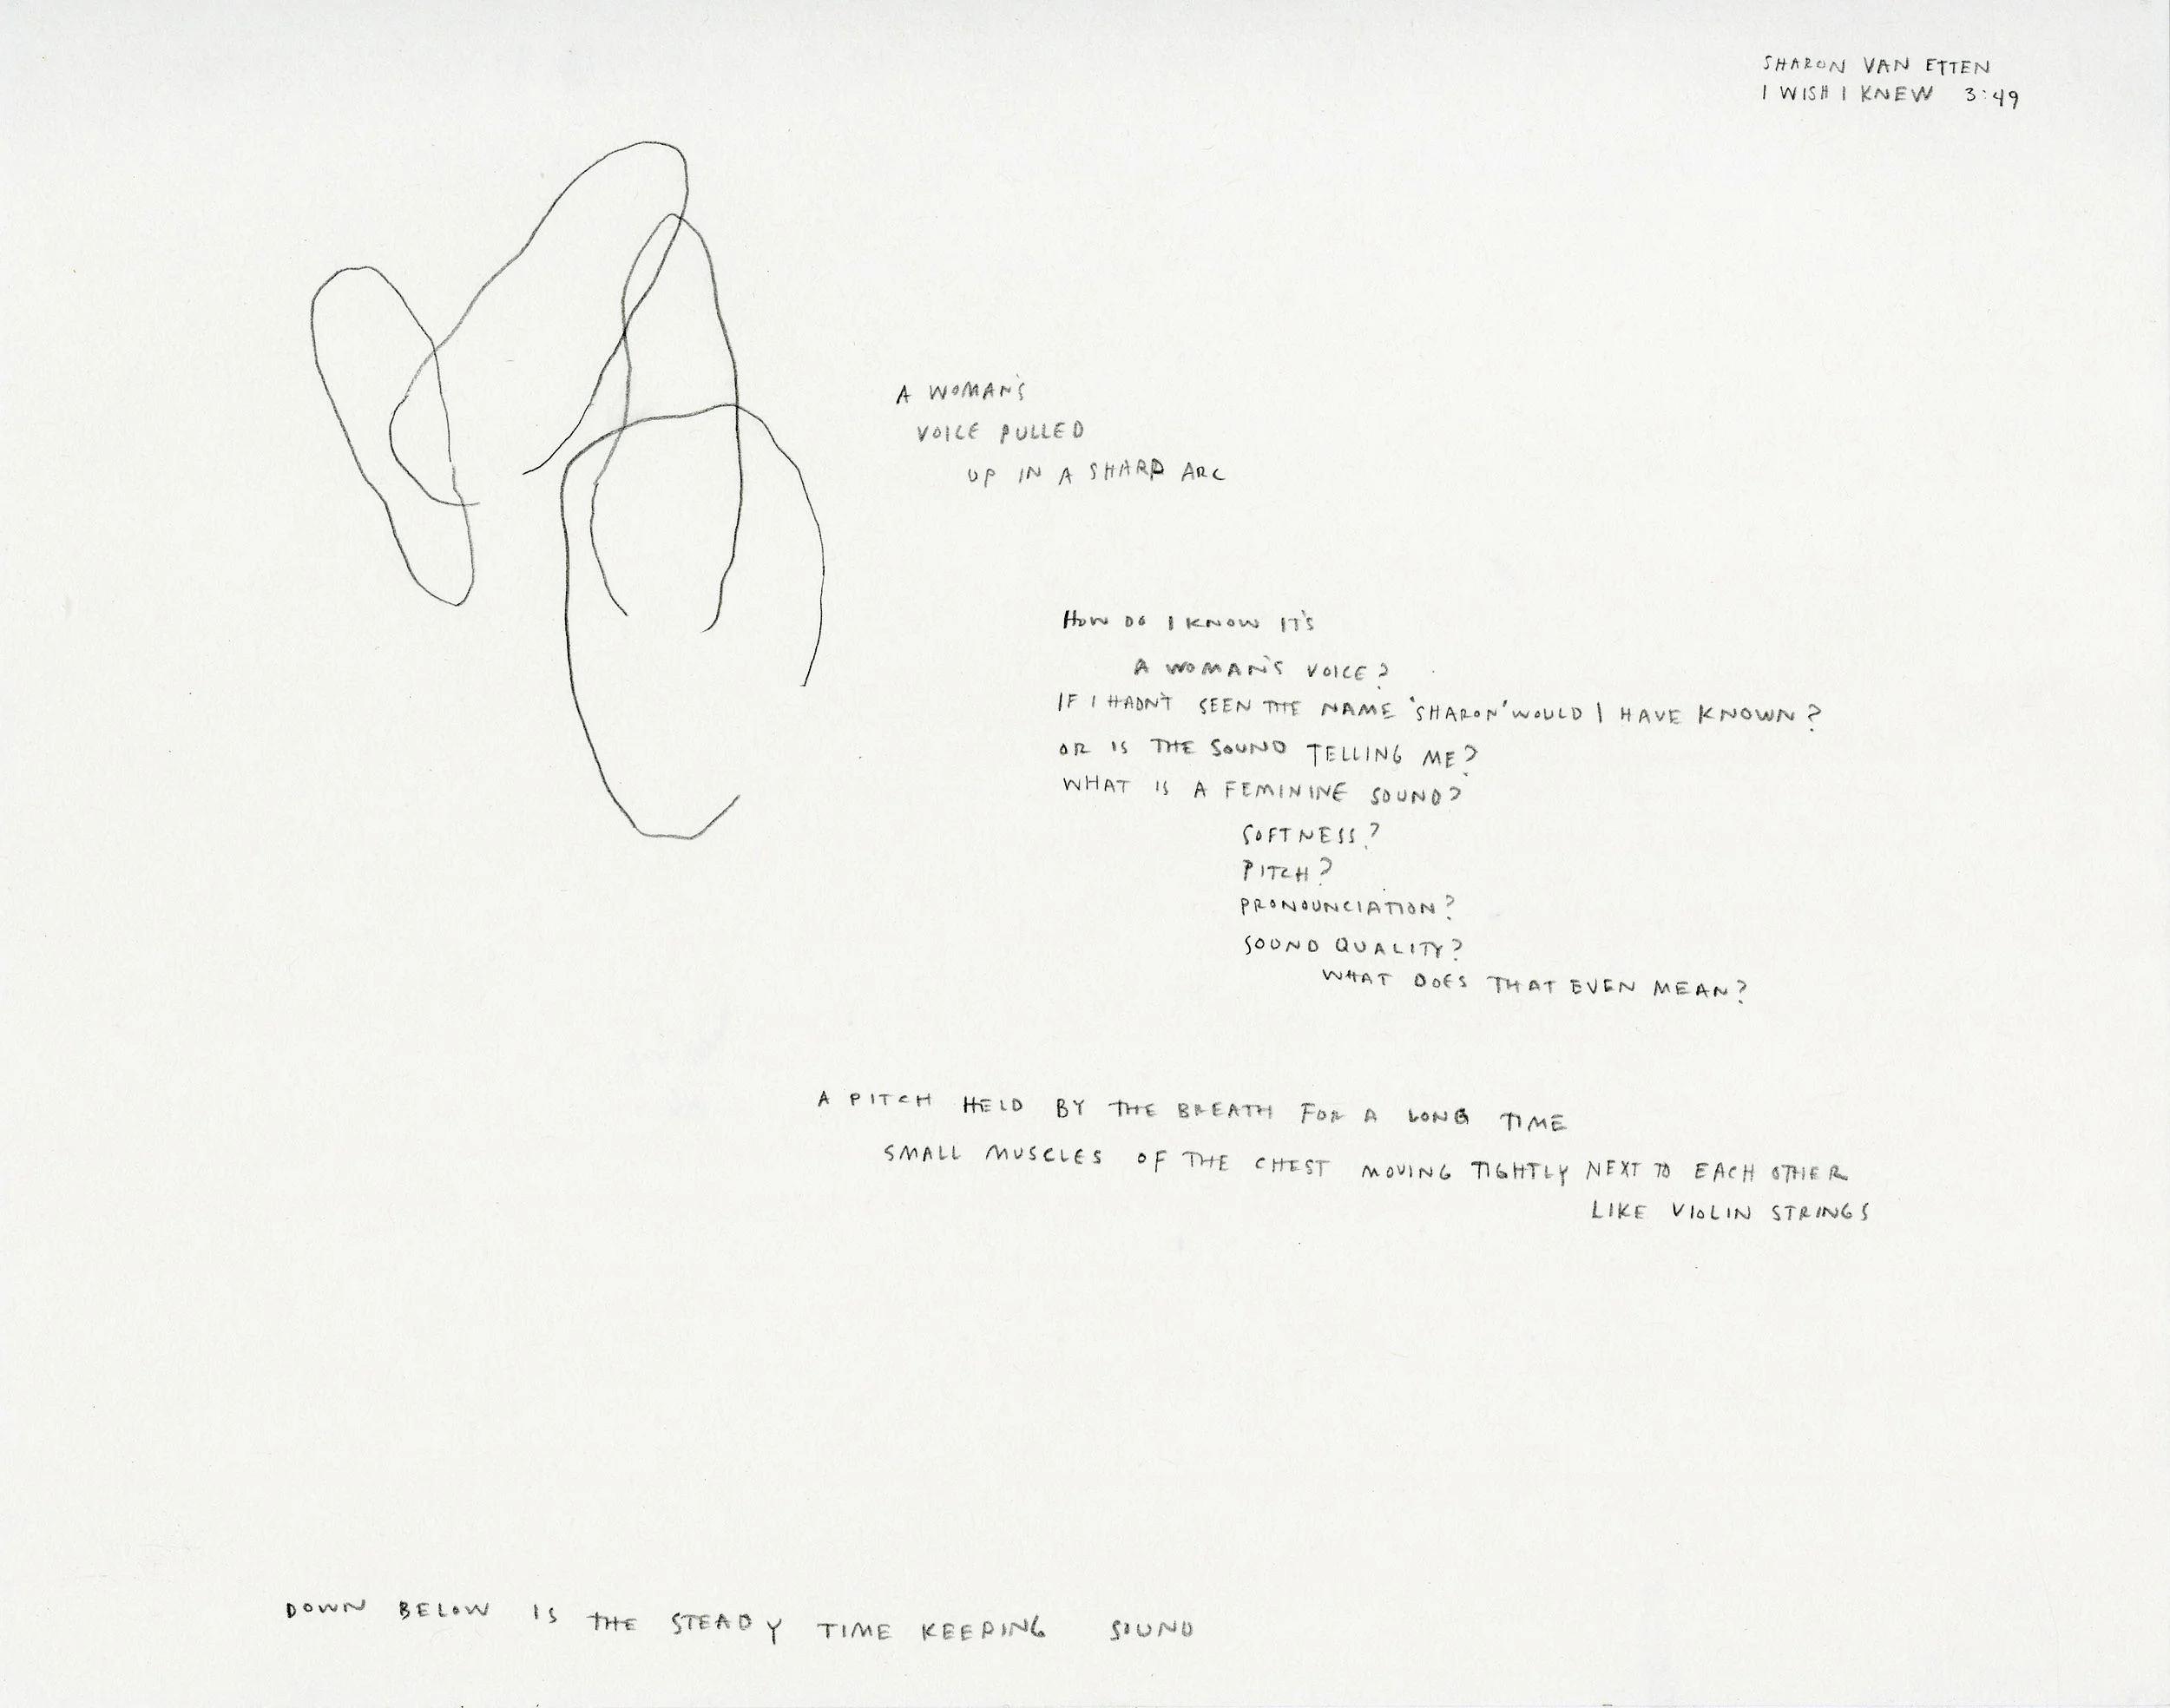 SHARON VAN ETTEN
I WISH I KNEW 3:49
A WOMAN'S
VOICE PULLED
UP IN A SHARP ARC
HOW DO I KNOW IT'S
A WOMAN'S VOICE?
IF I HADN'T SEEN THE NAME 'SHARON' WOULD I HAVE KNOWN?
OR IS THE SOUND TELLING ME?
WHAT IS A FEMININE SOUND?
SOFTNESS?
PITCH?
PRONOUNCIATION?
SOUND QUALITY?
WHAT DOES THAT EVEN MEAN?
A PITCH HELD BY THE BREATH FOR A LONG TIME
SMALL MUSCLES OF THE CHEST MOVING TIGHTLY NEXT TO EACH OTHER
LIKE VIOLIN STRINGS
DOWN BELOW IS THE STEADY TIME KEEPING SOUND